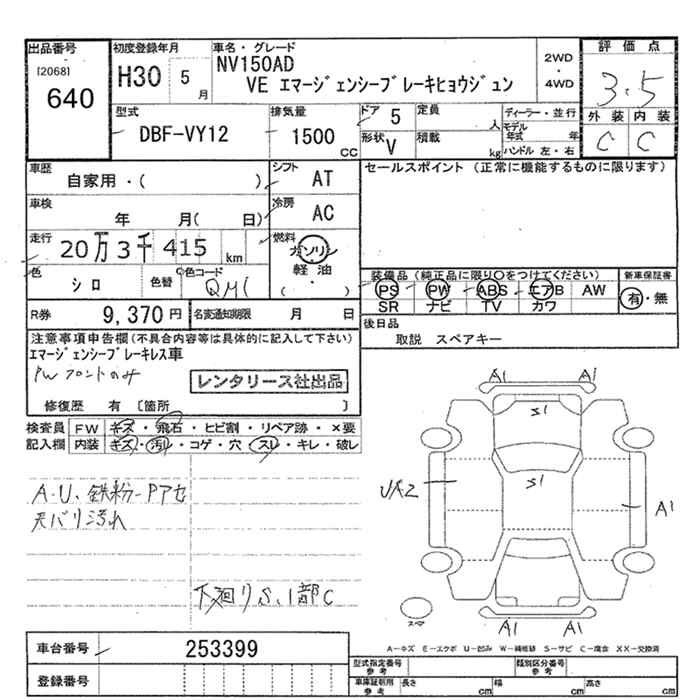 出品番号
[2068]
640
初度登録年月
H30 5
月
車名・グレード
NV150AD
VE エマージェンシーブレーキヒョウジュン
2WD
・
4WD
評価点
3.5
外装 内装
C C
型式
DBF-VY12
排気量
1500
CC
ドア 5
形状 V
定員
人
積載
kg
ディーラー・並行
モデル
年式 年
ハンドル 左・右
車歴
自家用・( )
シフト
AT
セールスポイント (正常に機能するものに限ります)
車検
年 月( 日)
冷房
AC
走行
20万3千415 km
燃料
ガソリン
軽油
( ・ )
色
シロ
色替
色コード
QM1
装備品 (純正品に限り○をつけてください)
PS PW ABS エアB AW
SR ナビ TV カワ
新車保証書
有・無
R券
9,370円
名変通知期限
月 日
後日品
取説 スペアキー
注意事項申告欄(不具合内容等は具体的に記入して下さい)
エマージェンシーブレーキレス車
PWフロントのみ
レンタリース社出品
修復歴 有 〔箇所 〕
検査員
記入欄
FW キズ・飛石・ヒビ割・リペア跡・×要
内装 キズ・汚れ・コゲ・穴・スレ・キレ・破レ
A・U、鉄粉-Pアセ
天バリ汚れ
下廻りS、1部C
A1 A1
S1
S1
A1
A1 A1
スペア
A-キズ E-エクボ U-凹み W-補修跡 S-サビ C-腐食 XX-交換済
車台番号
253399
登録番号
型式指定番号
参考
類別区分番号
参考
車庫証明用
参考
長さ cm
幅 cm
高さ cm